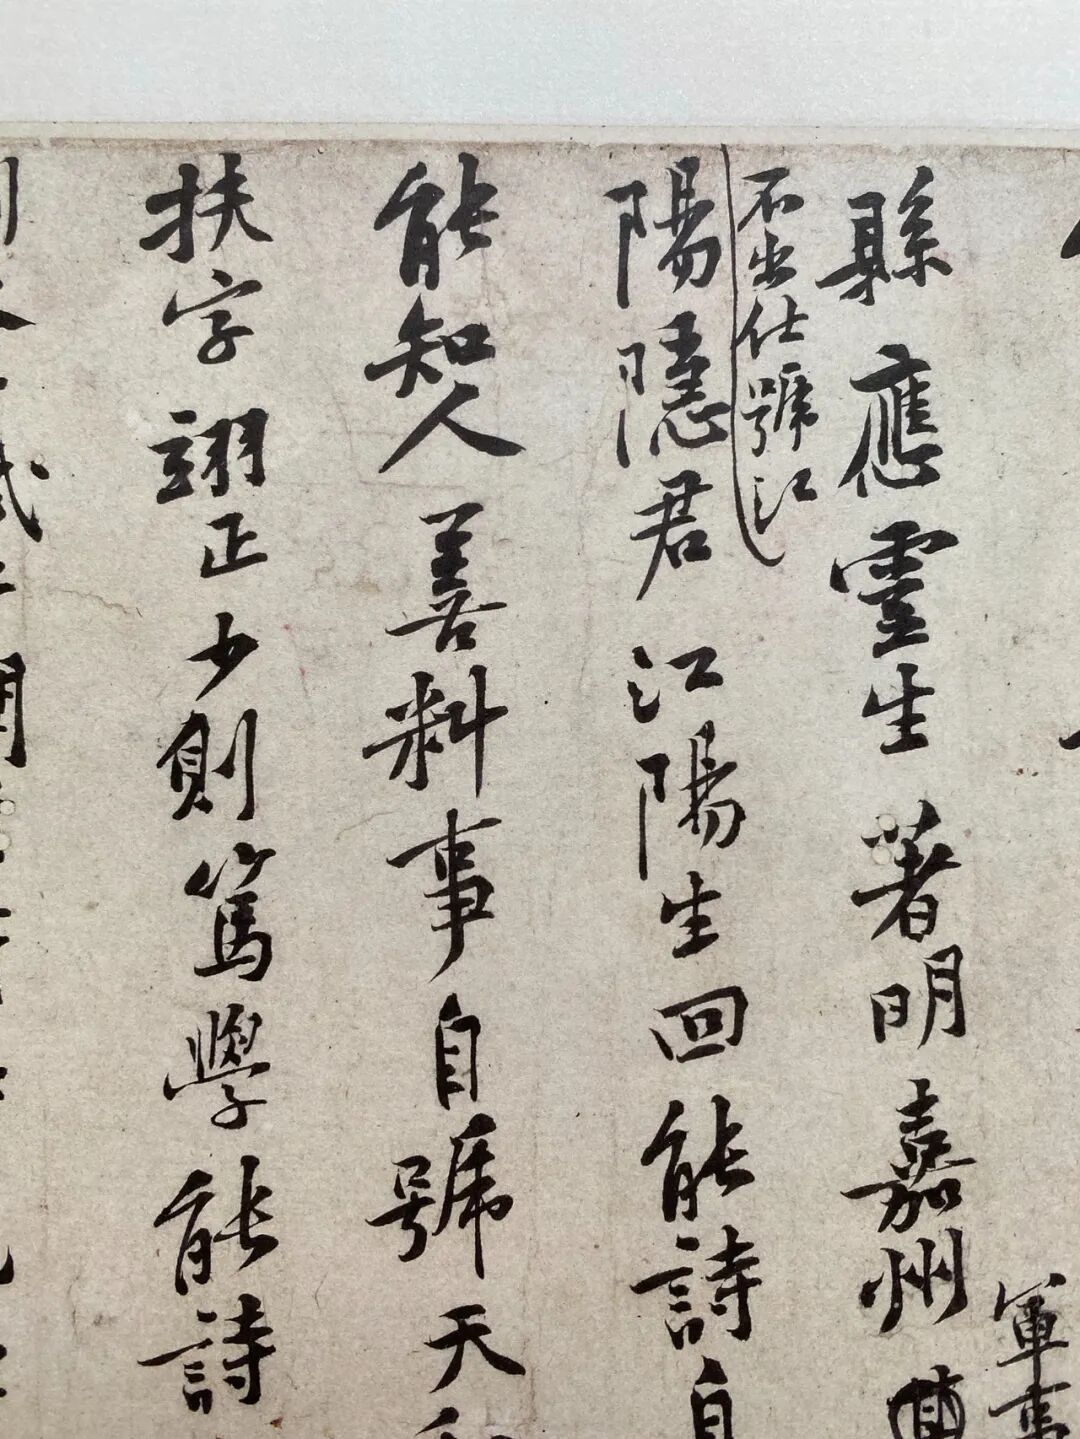 軍事
縣應靈生著明嘉州
不出仕號江
陽隱君江陽生回能詩自
能知人善料事自號天
扶字翊正少則篤學能詩